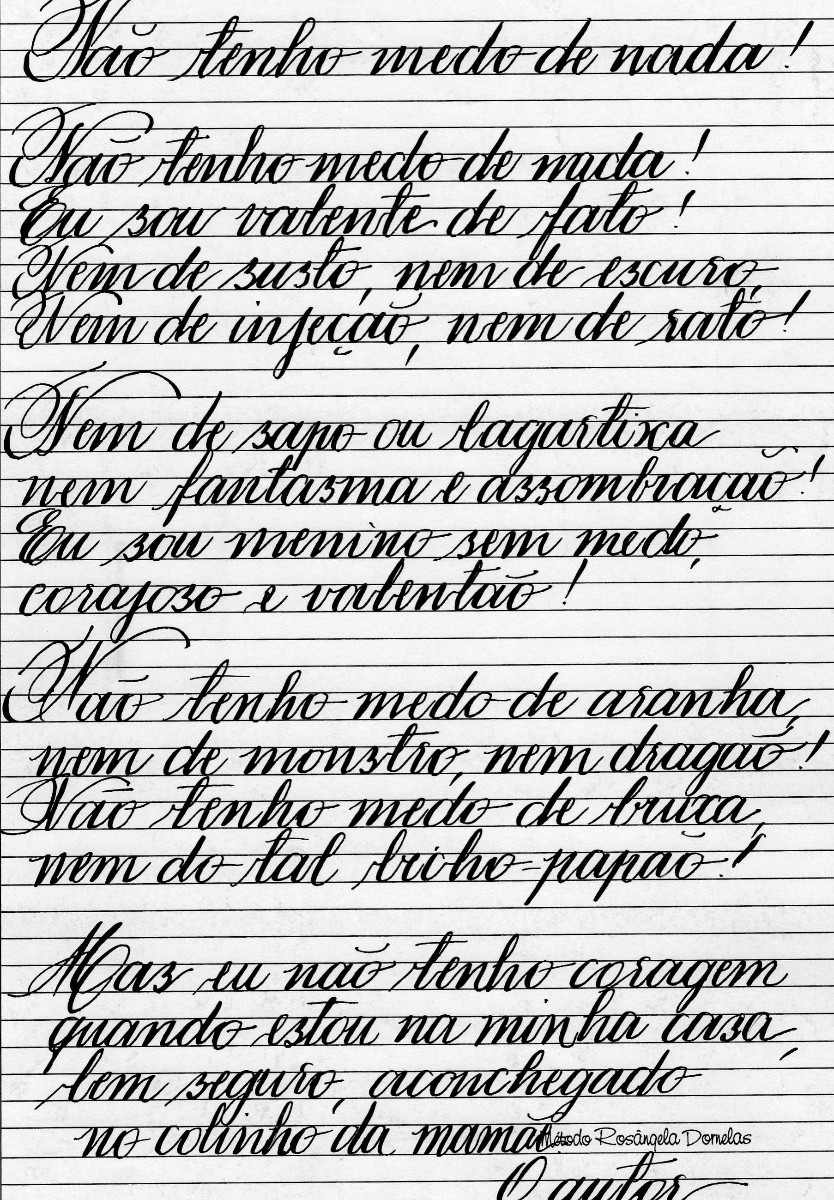 Não tenho medo de nada!
Não tenho medo de nada!
Eu sou valente de fato!
Nem de susto, nem de escuro,
Nem de injeção, nem de rato!
Nem de sapo ou lagartixa
nem fantasma e assombração!
Eu sou menino sem medo,
corajoso e valentão!
Não tenho medo de aranha,
nem de monstro, nem dragão!
Não tenho medo de bruxa,
nem do tal bicho-papão!
Mas eu não tenho coragem
quando estou na minha casa,
bem seguro, aconchegado
no colinho da mamãe
Método Rosângela Dornelas
O autor